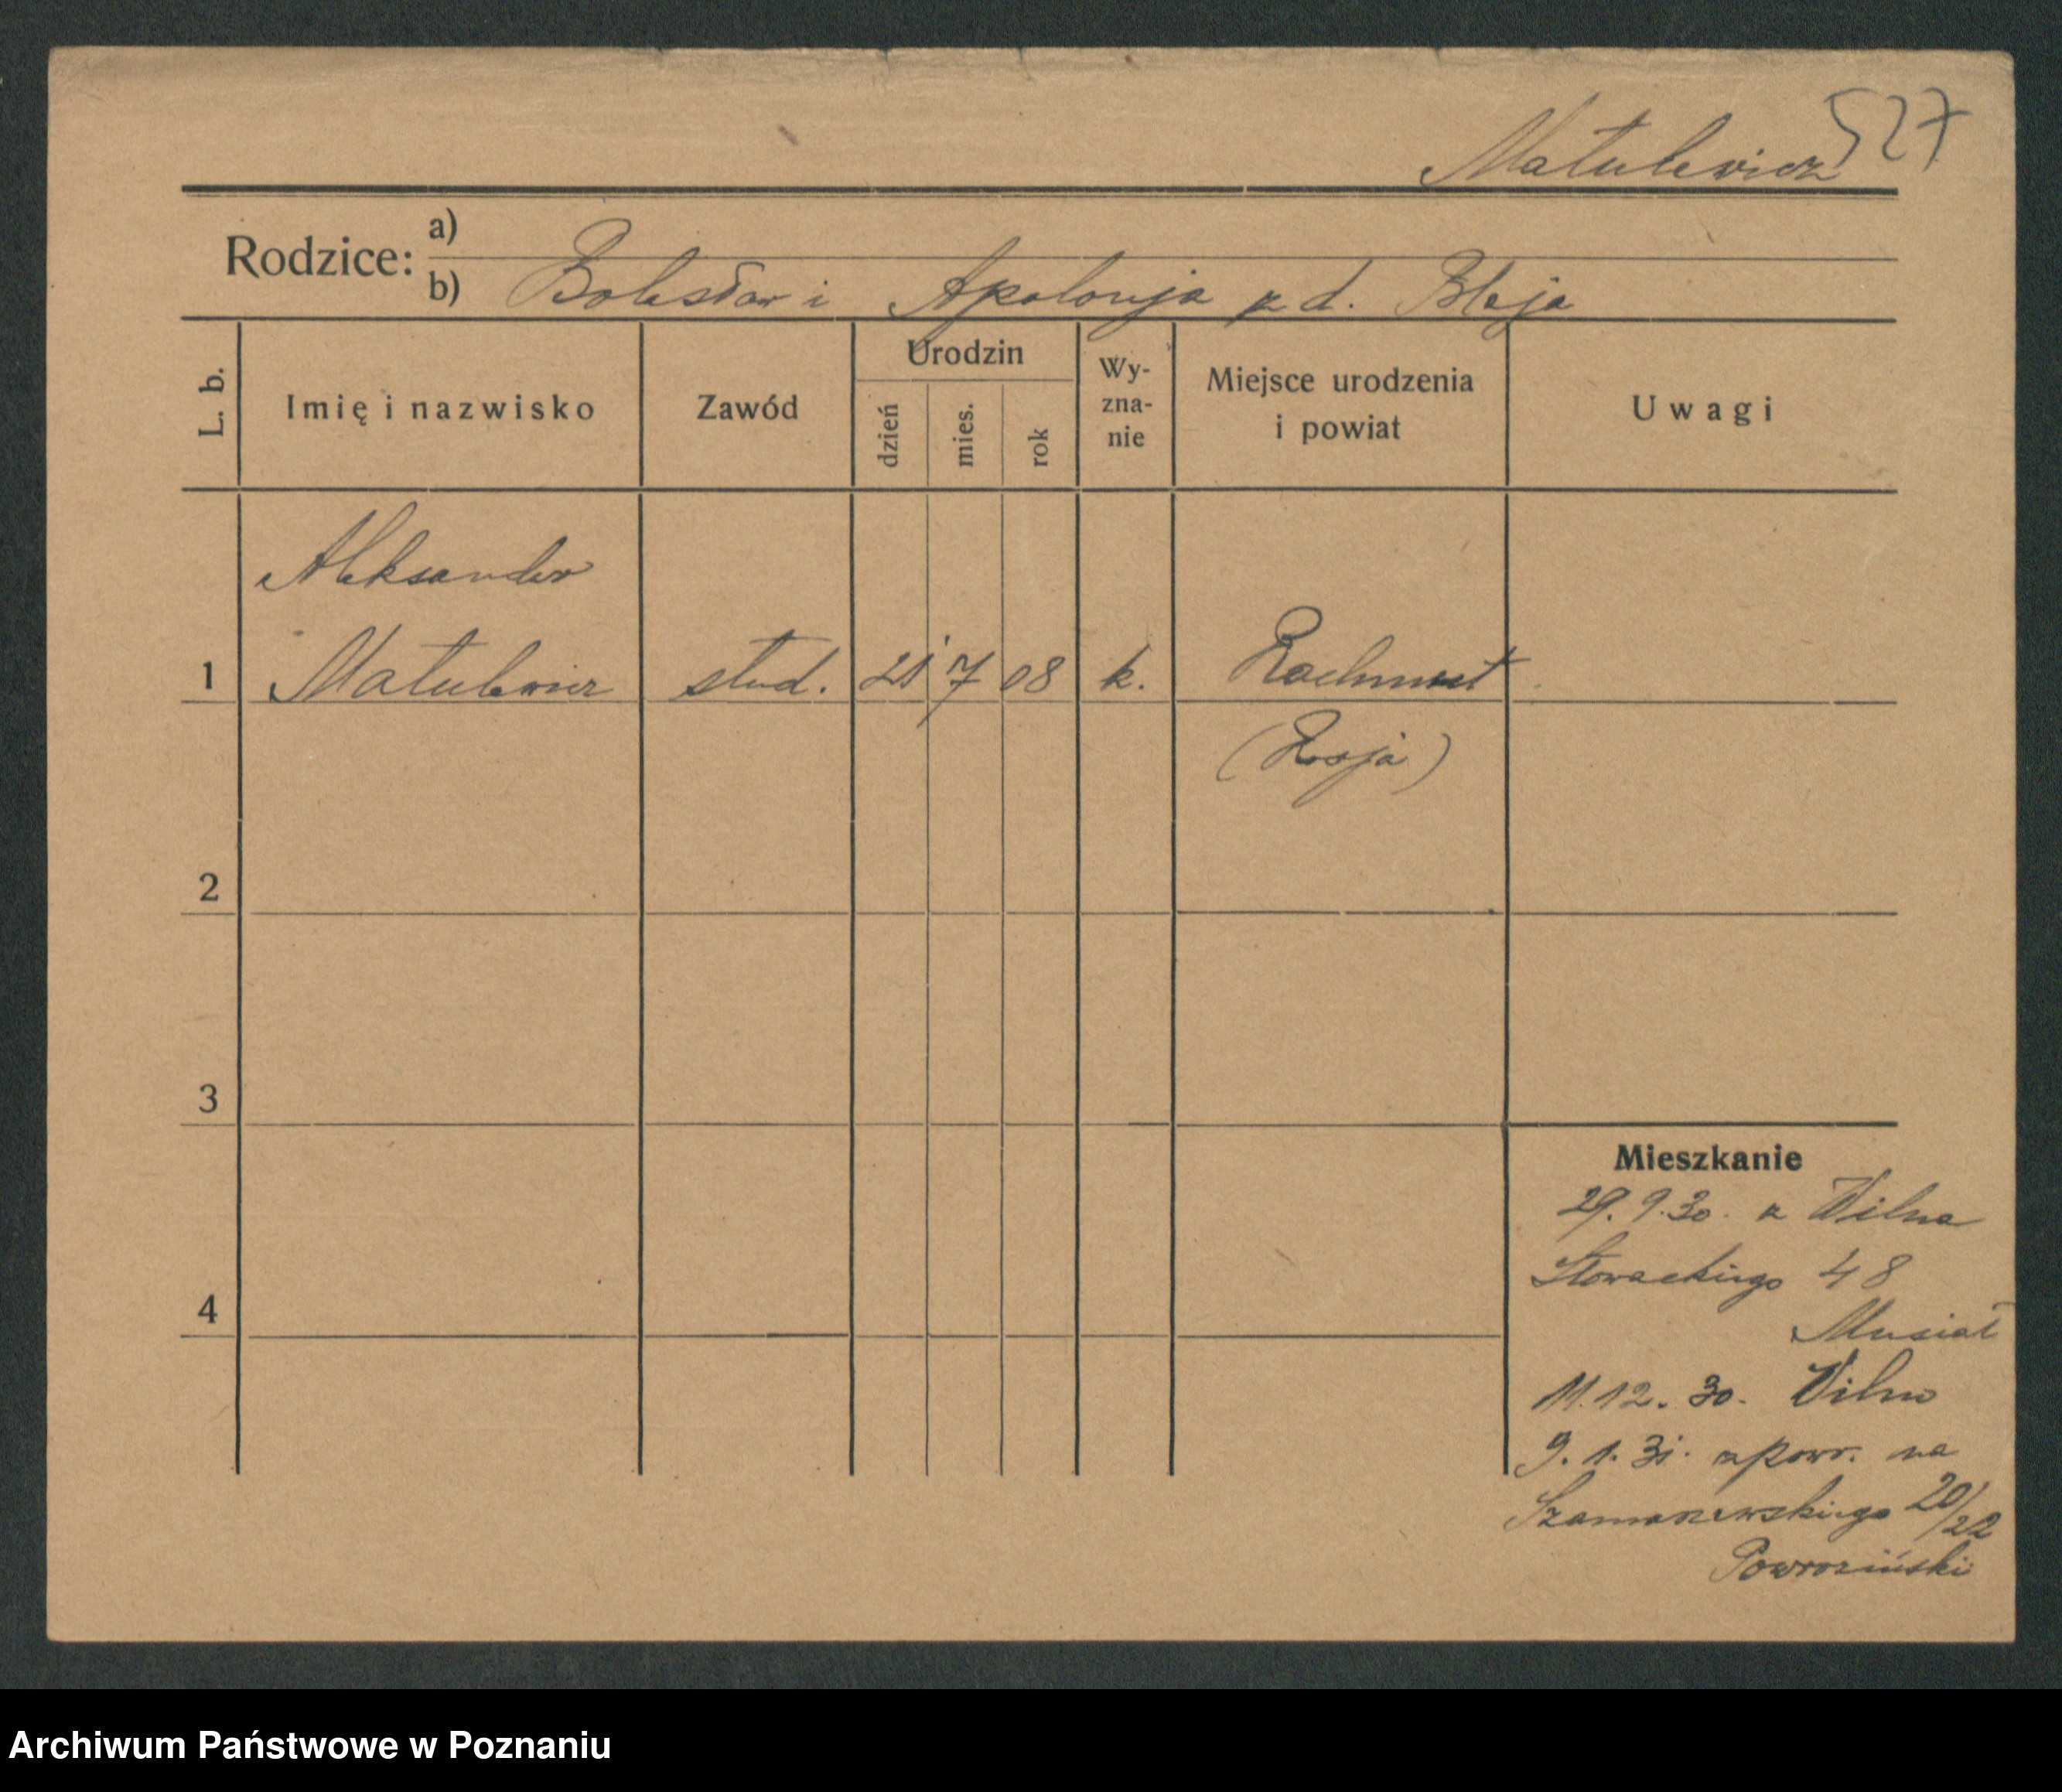 527
Matulewicz
Rodzice: a)
b) Bolesław i Apolonja z d. Bleja
L. b.
Imię i nazwisko
Zawód
Urodzin
dzień
mies.
rok
Wy-
zna-
nie
Miejsce urodzenia
i powiat
Uwagi
Aleksander
1 Matulewicz stud. 21 7 08 k.
(Rosja)
2
3
4
Mieszkanie
29. 9. 30. z Wilna
Słowackiego 48
Musiał
11. 12. 30. Wilno
9. 1. 31. zpowr. na
Szamarzewskiego 20/22
Powroziński
Archiwum Państwowe w Poznaniu